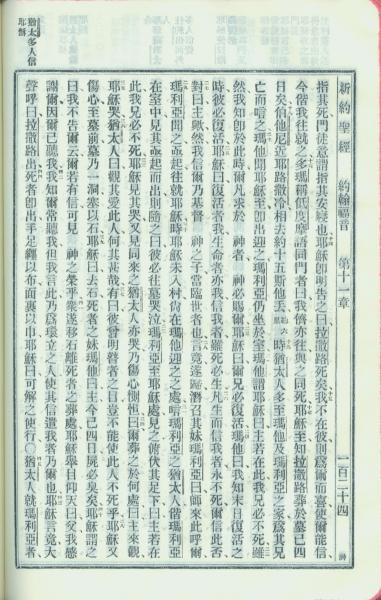 新約聖經 約翰福音 第十一章 一百二十四
指其死門徒意謂指其安寢也耶穌卽明告之曰拉撒路死矣我不在彼則爲爾而喜使爾能信
今偕我往就之多瑪稱低度摩語同門者曰我儕亦往與之同死耶穌至知拉撒路葬於墓已四
日矣伯他尼亞耶路撒冷相去約十五斯他丟時猶太人多至瑪他及瑪利亞之家爲其兄
亡而唁之瑪他聞耶穌至卽出迎之瑪利亞仍坐於室瑪他謂耶穌曰主若在此我兄必不死雖
然我知卽於此時爾凡求於 神者 神必賜爾耶穌曰爾兄必復活瑪他曰我知末日復活之
時彼必復活耶穌曰復活者我生命者亦我信我者雖死必生凡生而信我者永不死爾信此否
對曰主歟然我信爾乃基督 神之子當臨世者也言竟遂歸潛召其妹瑪利亞曰師來此呼爾
瑪利亞聞之亟起往就耶穌時耶穌未入村尙在瑪他迎之之處唁瑪利亞之猶太人偕瑪利亞
在室中見其亟起而出則隨之曰彼必往墓哭泣瑪利亞至耶穌處見之俯伏其足下曰主若在
此我兄必不死耶穌見其哭又見同來之猶太人亦哭乃傷心惻怛曰爾葬之於何處曰主來觀
耶穌哭猶太人曰觀其愛此人何其甚哉有曰彼曾明瞽者之目豈不能使此人不死乎耶穌又
傷心至墓前墓乃一洞塞以石耶穌曰去石死者之妹瑪他曰主今已四日屍必臭矣耶穌謂之
曰我不告爾云爾若信可見 神之榮乎衆遂移石離死者之葬處耶穌舉目仰天曰父我感
謝爾因爾已聽我我知爾常聽我但我言此乃爲環立之人使其信遣我者乃爾也耶穌言竟大
聲呼曰拉撒路出死者卽出手足纏以布面裹以巾耶穌曰可解之使行○猶太人就瑪利亞者
猶太多人信
耶穌